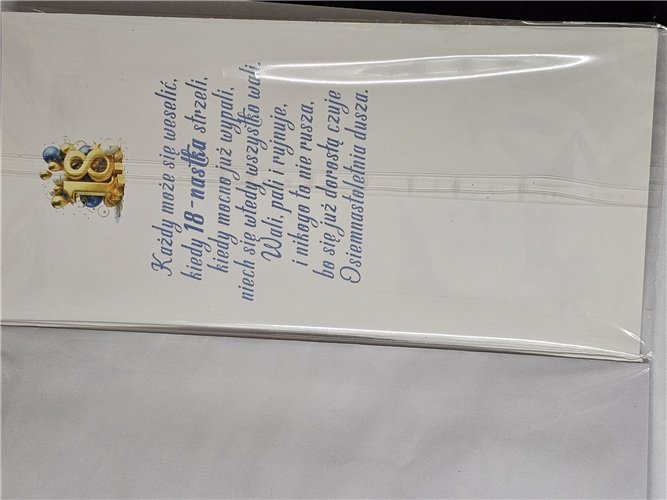 18
Każdy może się weselić,
kiedy 18-nastka strzeli,
kiedy mocno już wypali,
niech się wtedy wszystko wali.
Wali, pali i rujnuje,
i nikogo to nie rusza,
bo się już dorosłą czuje
Osiemnastoletnia dusza.